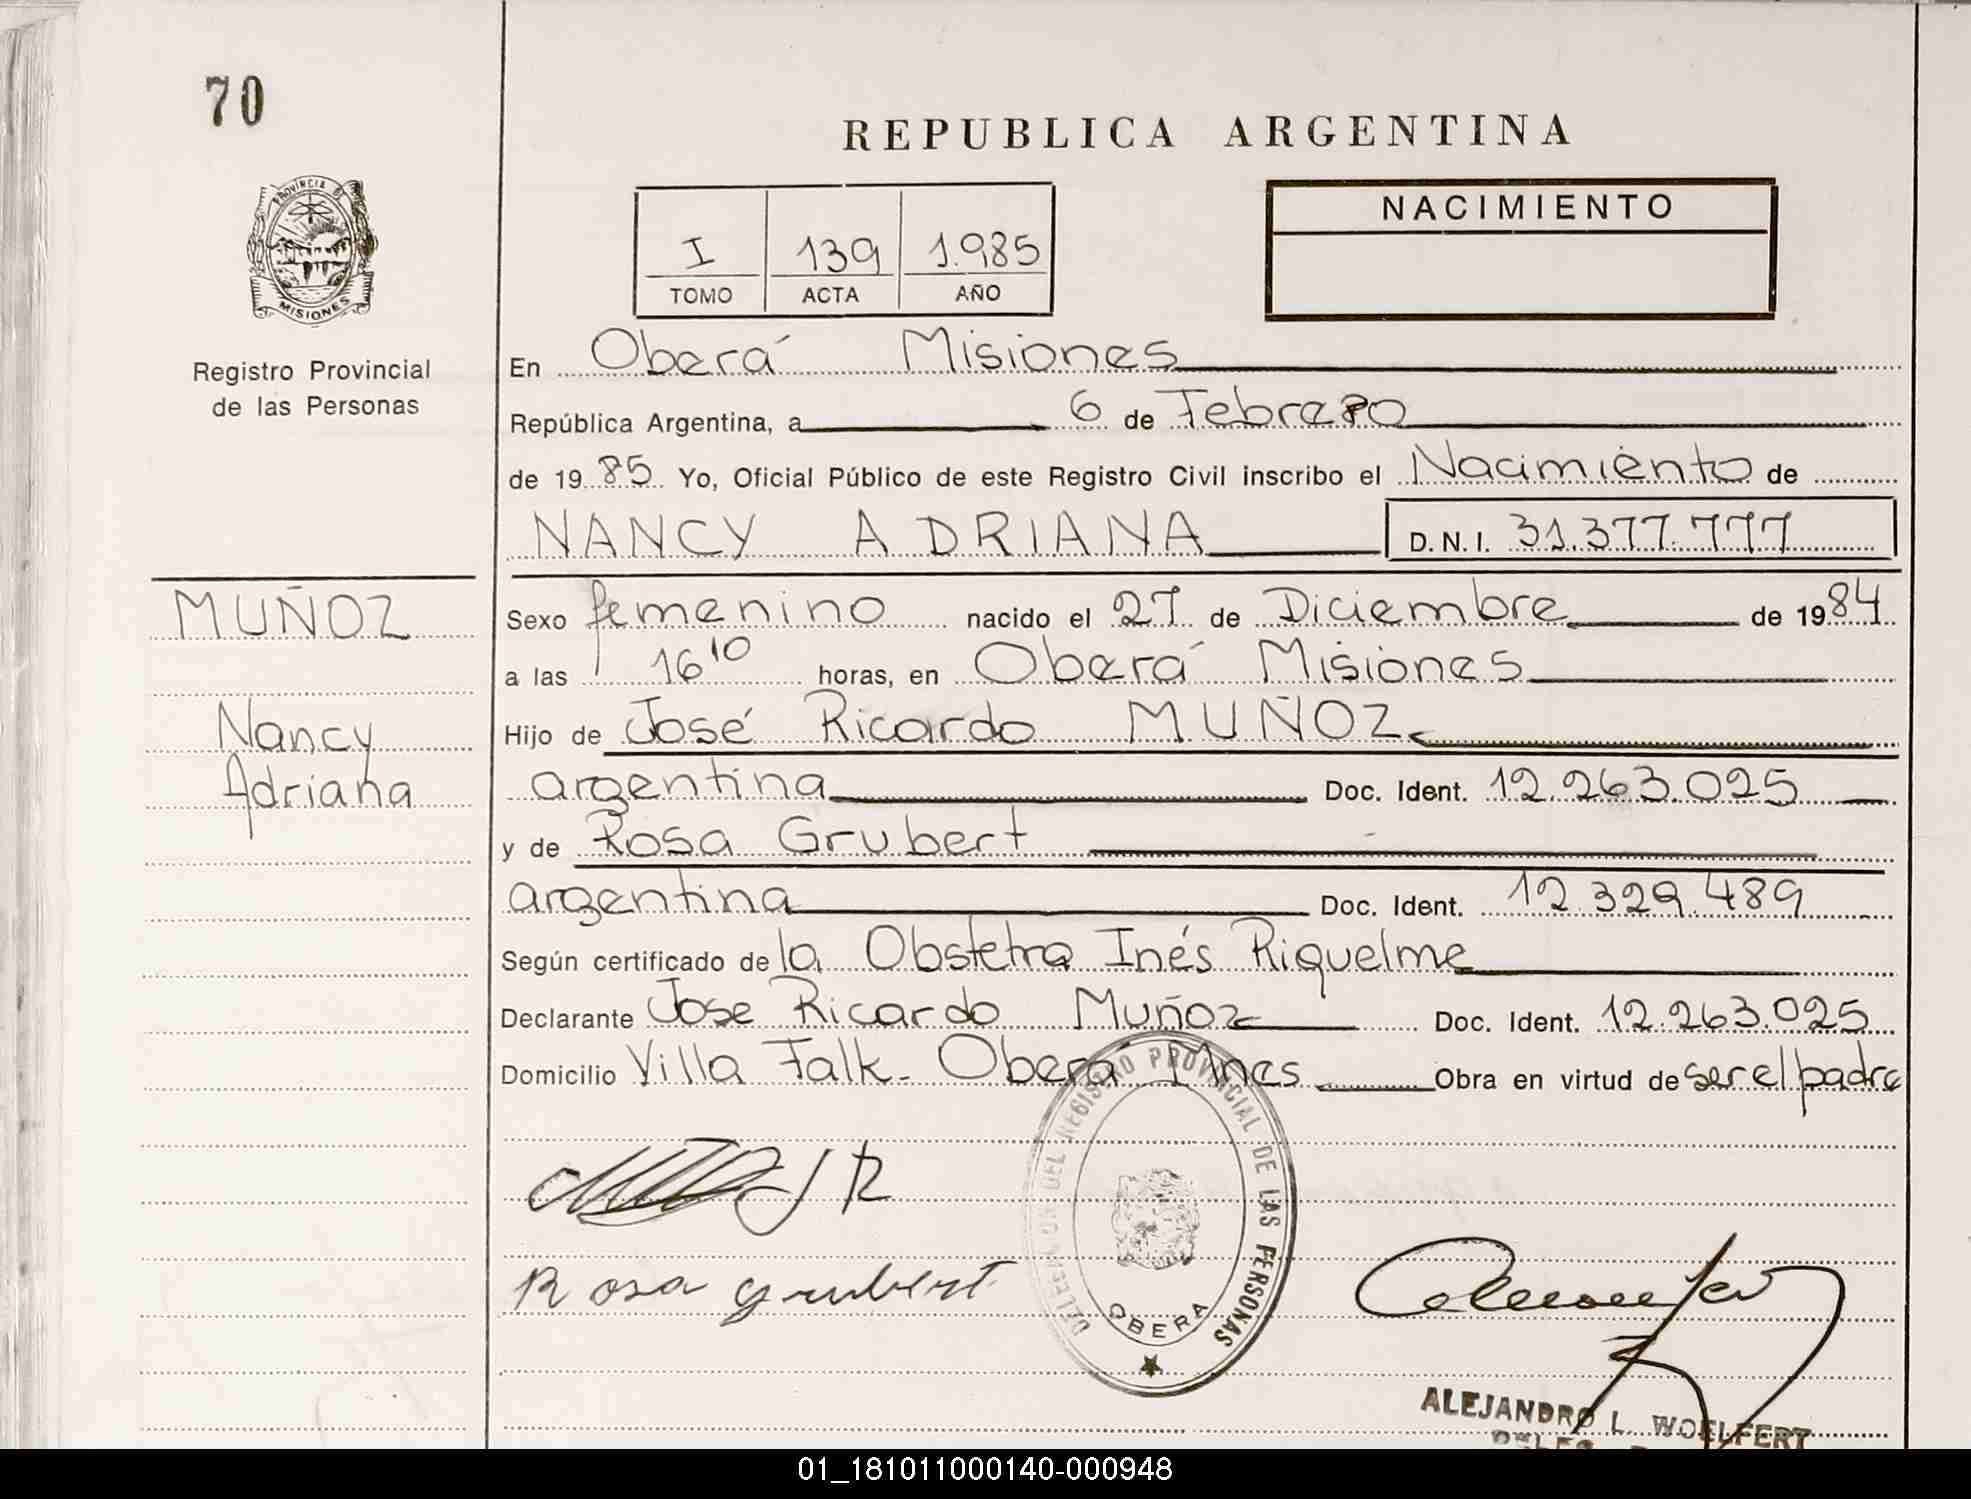 70
REPUBLICA ARGENTINA
PROVINCIA DE
MISIONES
Registro Provincial
de las Personas
I 139 1.985
TOMO ACTA AÑO
NACIMIENTO
En Oberá Misiones
República Argentina, a 6 de Febrero
de 19 85 Yo, Oficial Público de este Registro Civil inscribo el Nacimiento de
NANCY ADRIANA D.N.I. 31.377.777
MUÑOZ
Nancy
Adriana
Sexo femenino nacido el 27 de Diciembre de 1984
a las 16 10 horas, en Oberá Misiones
Hijo de José Ricardo MUÑOZ
argentina Doc. Ident. 12.263.025
y de Rosa Grubert
argentina Doc. Ident. 12.329.489
Según certificado de la Obstetra Inés Riquelme
Declarante Jose Ricardo Muñoz Doc. Ident. 12.263.025
Domicilio Villa Falk. Oberá Mnes Obra en virtud de ser el padre
DELEGACION DEL REGISTRO PROVINCIAL DE LAS PERSONAS
OBERA
Rosa Grubert
ALEJANDRO L. WOELFERT
01_181011000140-000948